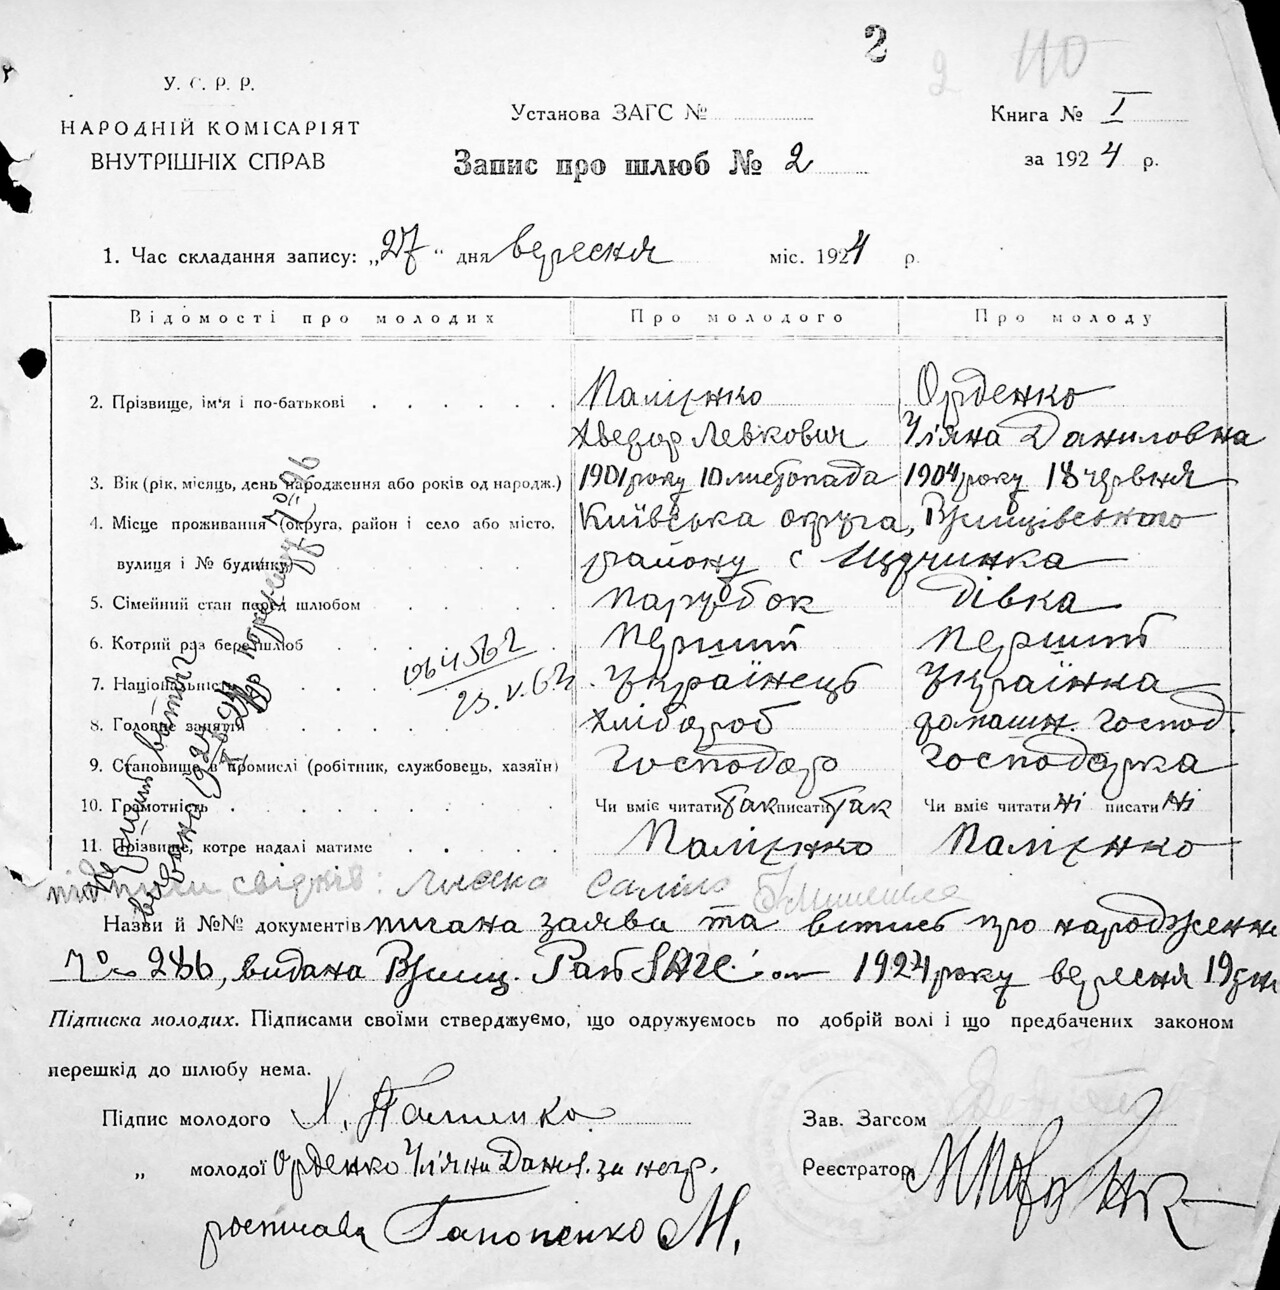 2
2 110
У. С. Р. Р.
НАРОДНІЙ КОМІСАРІЯТ
ВНУТРІШНІХ СПРАВ
Установа ЗАГС №
Запис про шлюб № 2
Книга № I
за 1924 р.
1. Час складання запису: „27“ дня вересня міс. 1924 р.
Відомості про молодих Про молодого Про молоду
2. Прізвище, ім'я і по-батькові Паліенко Орденко
Хведор Левкович Уляна Даниловна
3. Вік (рік, місяць, день народження або років од народж.) 1901 року 10 листопада 1904 року 18 червня
4. Місце проживання (округа, район і село або місто, Київська округа,
вулиця і № будинку) району с
5. Сімейний стан перед шлюбом парубок дівка
6. Котрий раз бере шлюб перший перший
7. Національність українець українка
8. Головне заняття хлібороб домашн. господ.
9. Становище в промислі (робітник, службовець, хазяїн) Господар Господарка
10. Грамотність Чи вміє читати так писати так Чи вміє читати ні писати ні
11. Прізвище, котре надалі матиме Паліенко Паліенко
064562
23.V.62
підписи свідків:
Назви й №№ документів писана заява та витись про народження
№ 286, видана 1924 року вересня 19 дня
Підписка молодих. Підписами своїми стверджуємо, що одружуємось по добрій волі і що предбачених законом
перешкід до шлюбу нема.
Підпис молодого Х. Палиенко Зав. Загсом
„ молодої Орденко Уляни Данил. за негр. Реєстратор
росписавсь Гапоненко М.